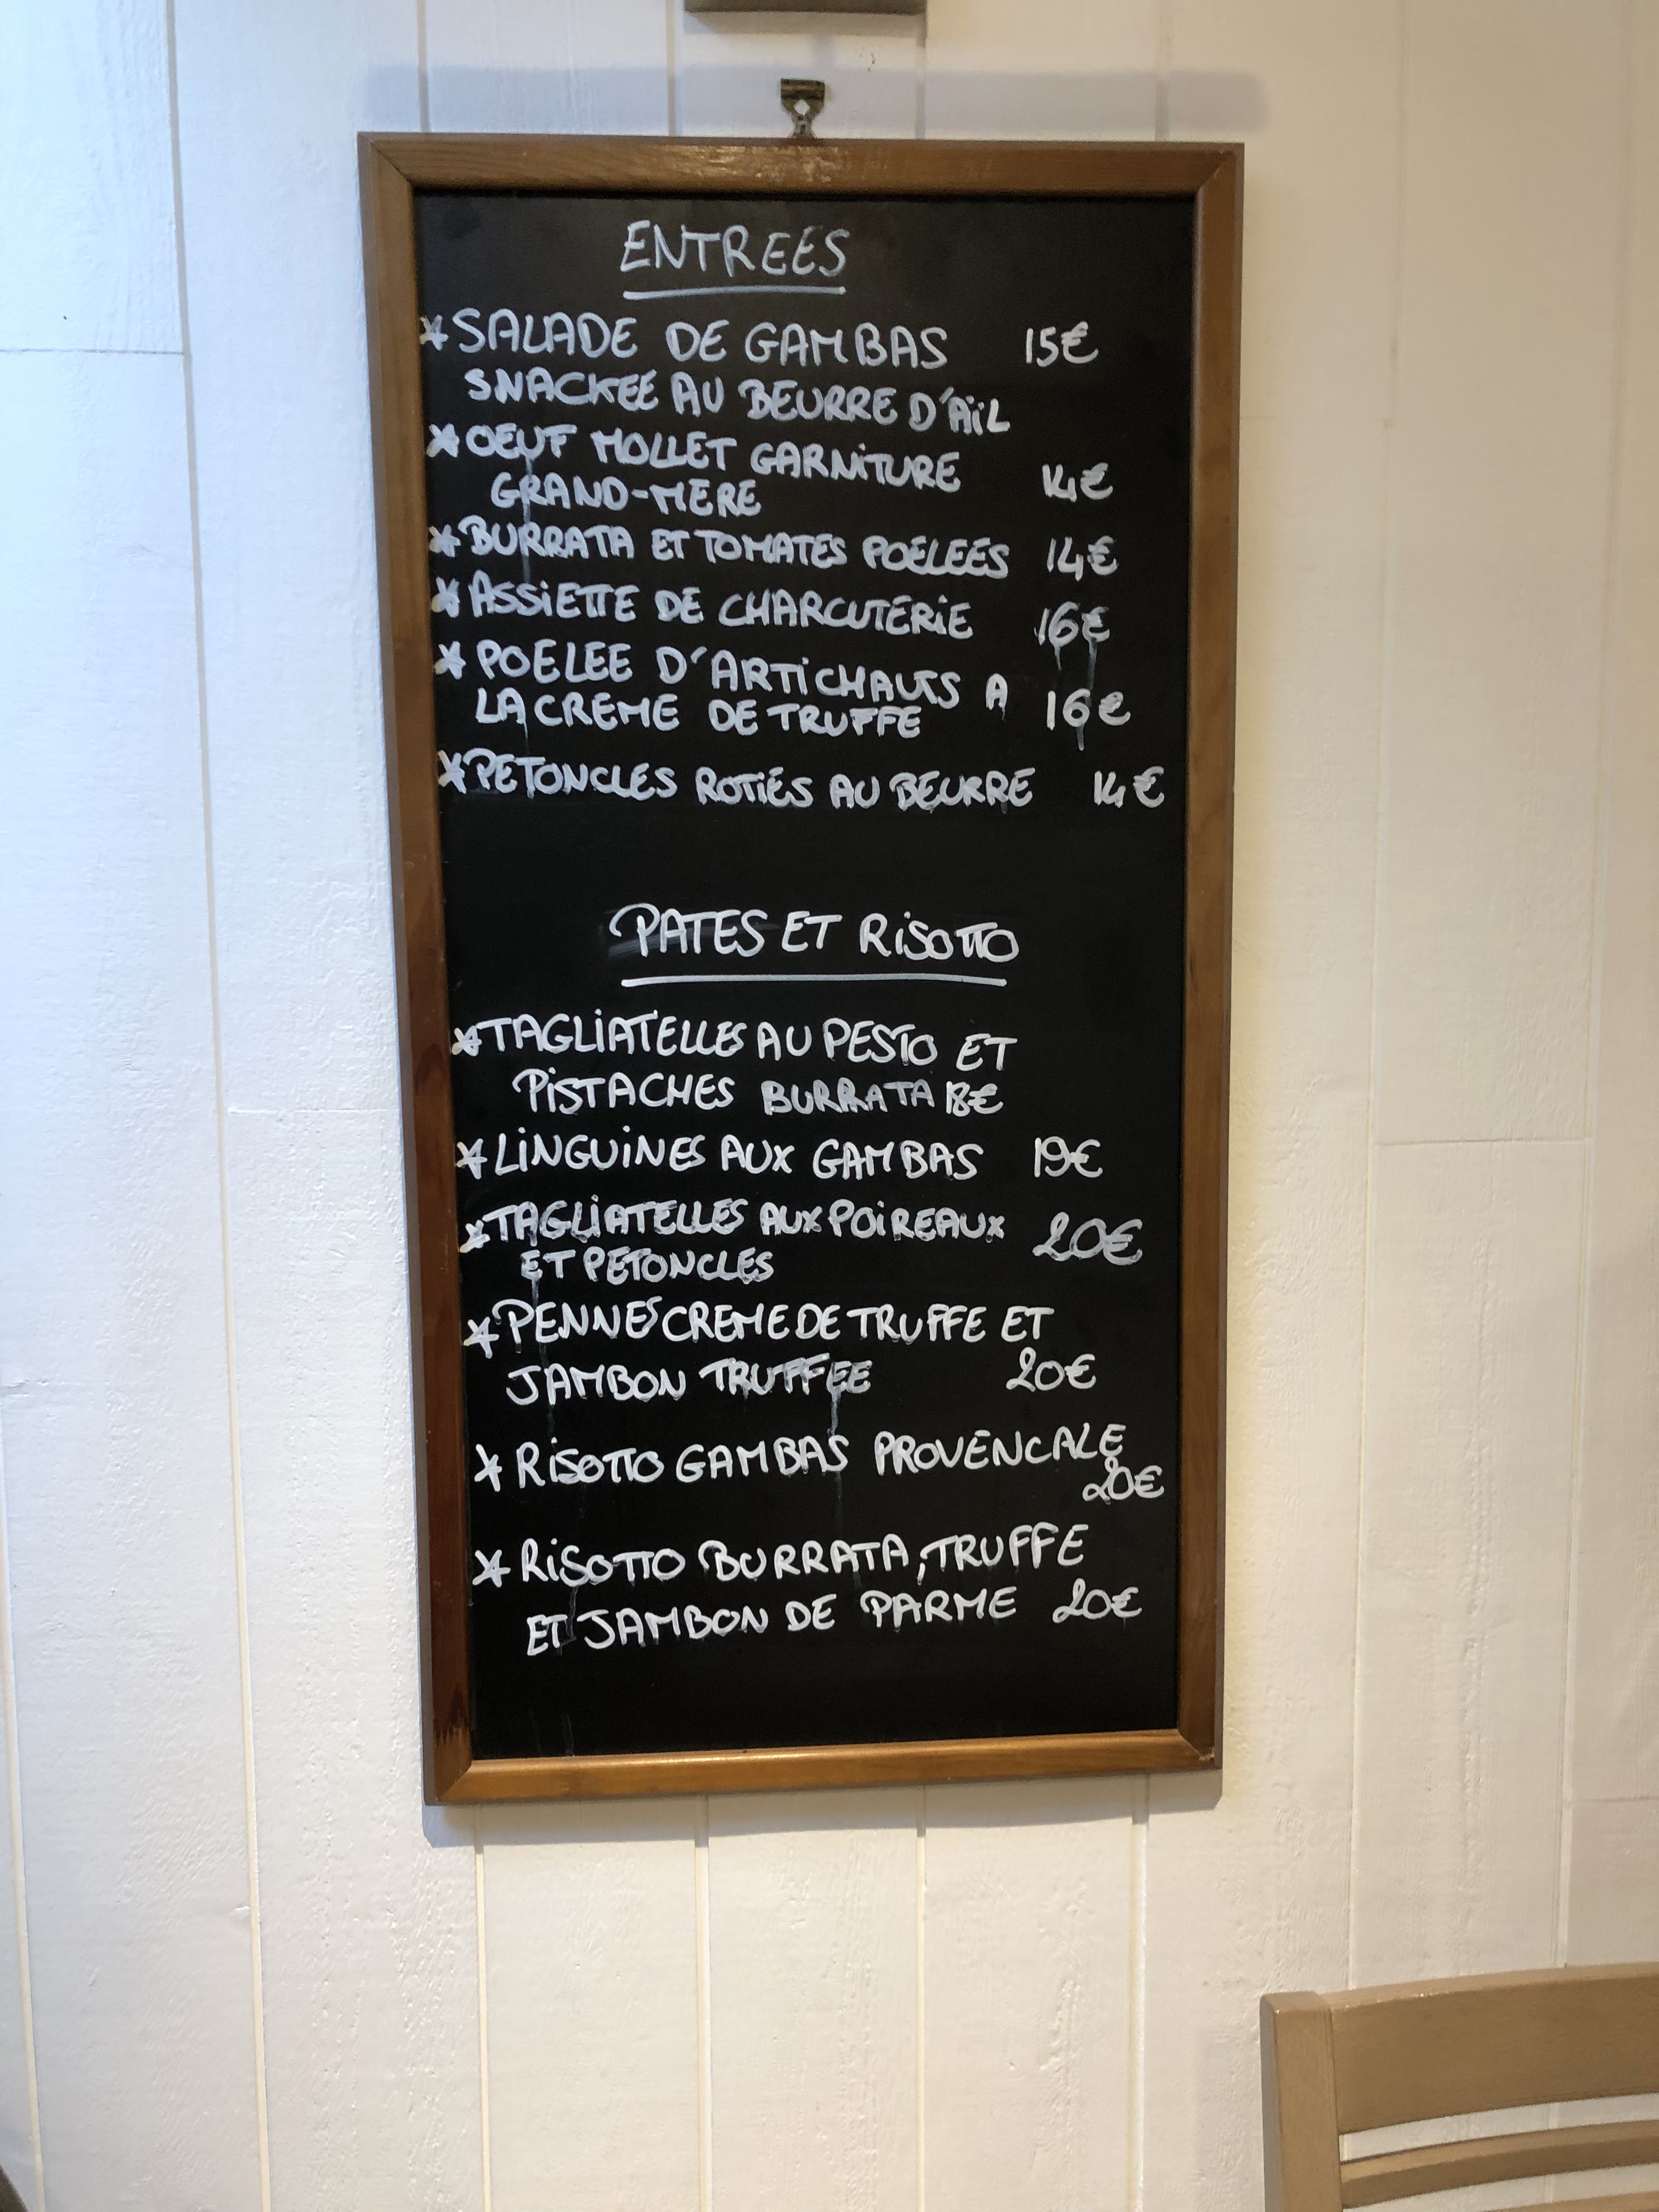 ENTREES
*SALADE DE GAMBAS 15€
SNACKEE AU BEURRE D'AÏL
*OEUF MOLLET GARNITURE
GRAND-MERE 14€
*BURRATA ET TOMATES POELEES 14€
*ASSIETTE DE CHARCUTERIE 16€
*POELEE D'ARTICHAUTS A
LA CREME DE TRUFFE 16€
*PETONCLES ROTIES AU BEURRE 14€
PATES ET RISOTTO
*TAGLIATELLES AU PESTO ET
PISTACHES BURRATA 18€
*LINGUINES AUX GAMBAS 19€
*TAGLIATELLES AUX POIREAUX 20€
ET PETONCLES
*PENNES CREME DE TRUFFE ET
JAMBON TRUFFEE 20€
*RISOTTO GAMBAS PROVENCALE
20€
*RISOTTO BURRATA, TRUFFE
ET JAMBON DE PARME 20€